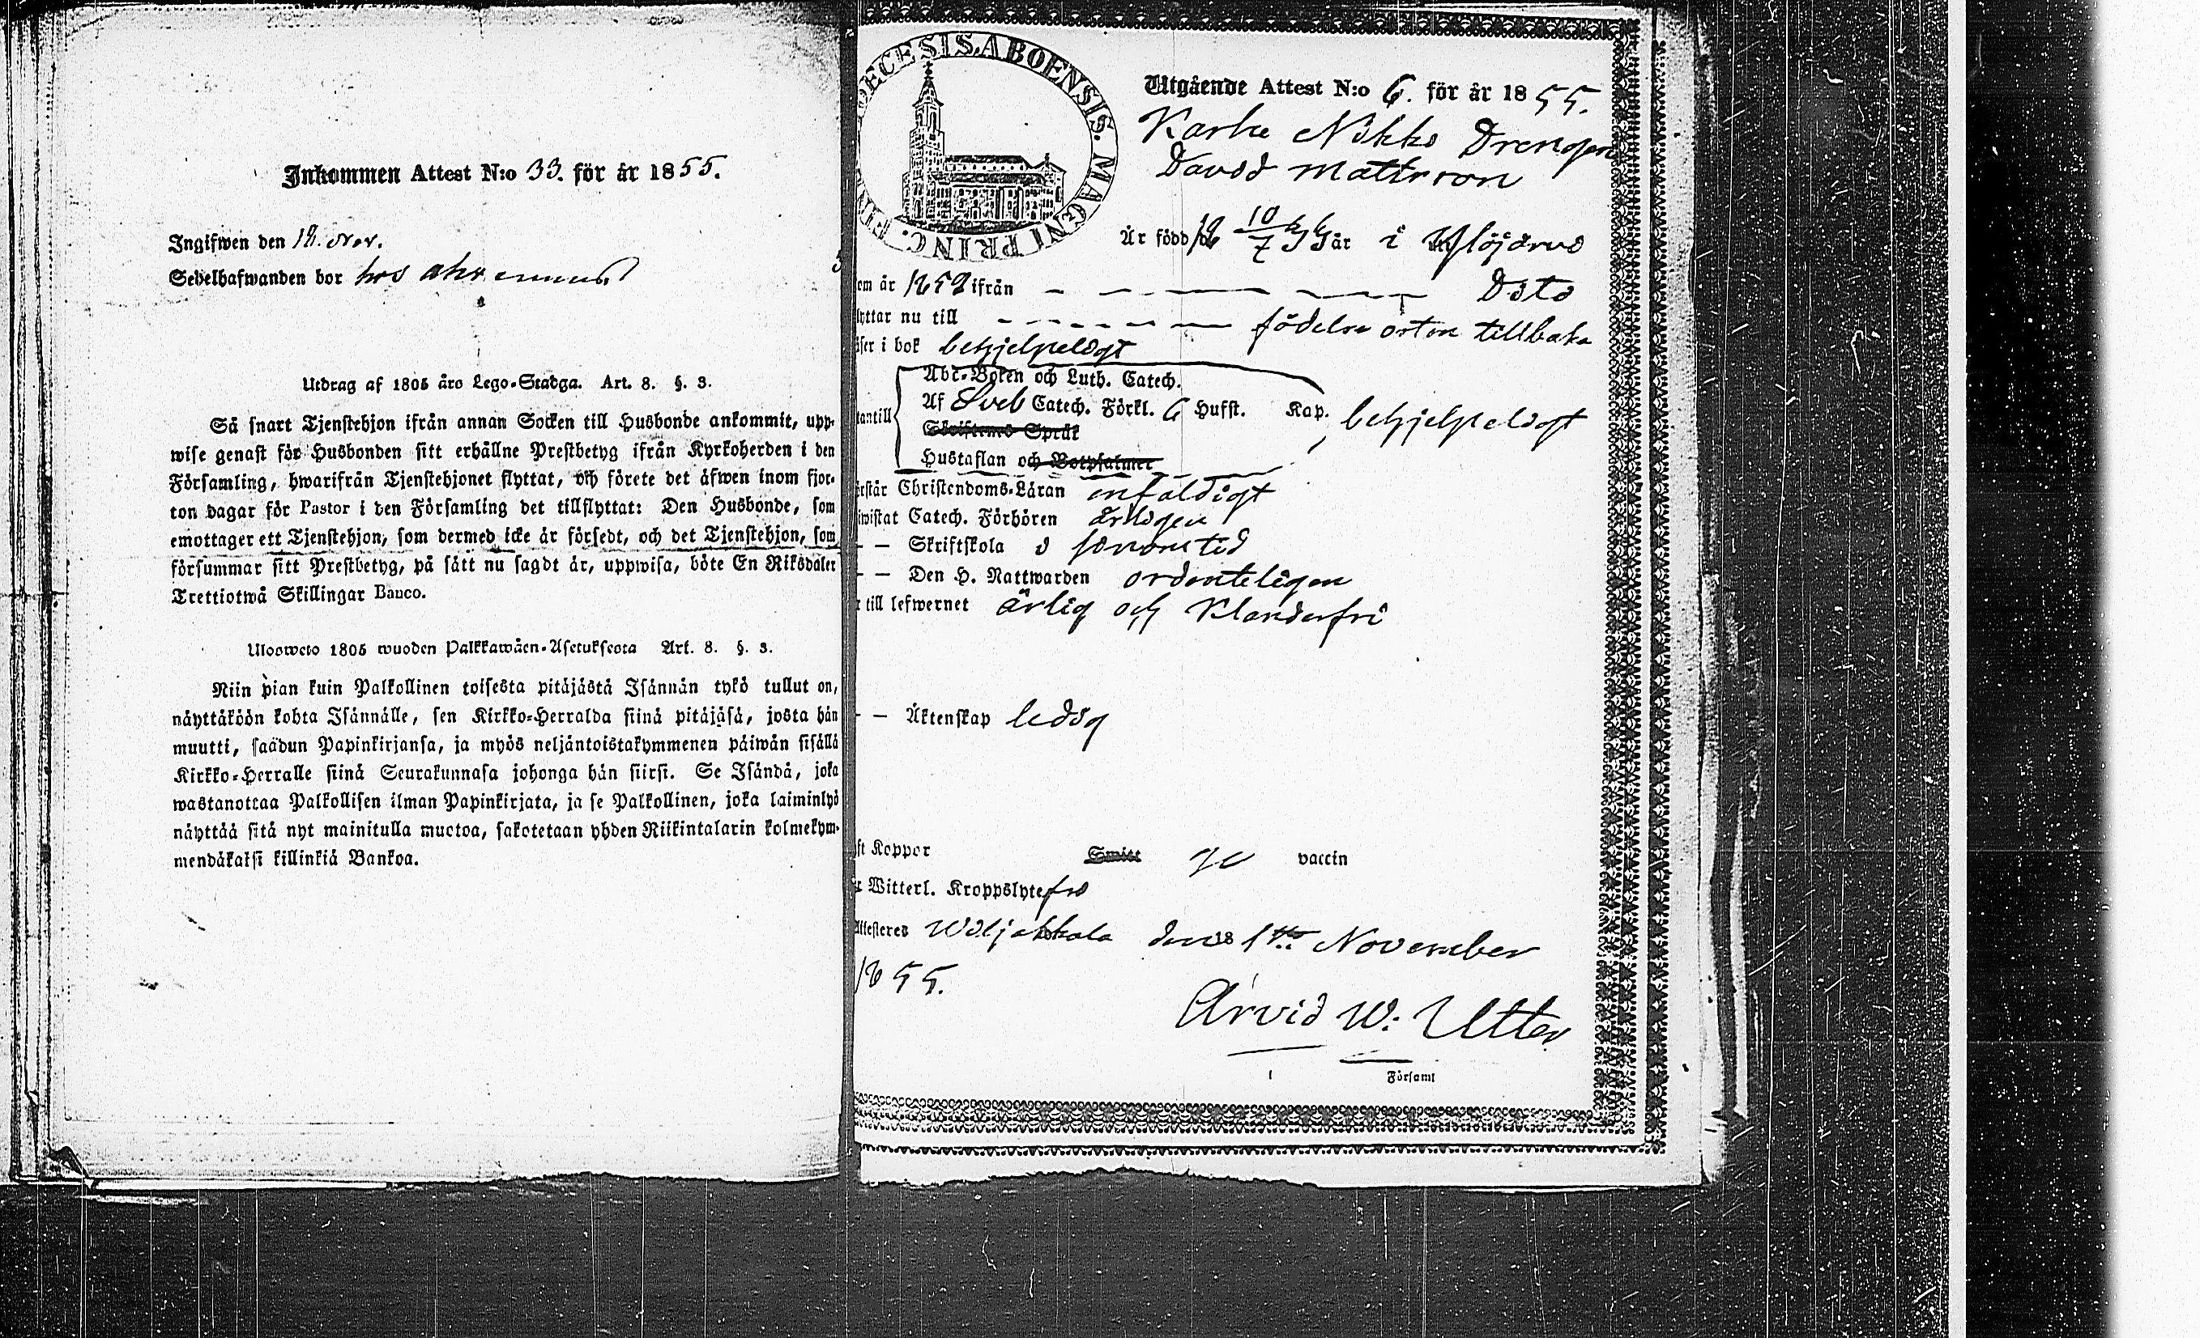 Inkommen Attest N:o 33. för år 1855.
Ingifwen den 18. Nov.
Sedelhafwanden bor hos
Utdrag af 1805 års Lego-Stadga. Art. 8. §. 3.
Så snart Tjenstehjon ifrån annan Socken till Husbonde ankommit, upp-
wise genast för Husbonden sitt erhållne Prestbetyg ifrån Kyrkoherden i den
Församling, hwarifrån Tjenstehjonet flyttat, och förete det äfwen inom fjor-
ton dagar för Pastor i den Församling det tillflyttat: Den Husbonde, som
emottager ett Tjenstehjon, som dermed icke är försedt, och det Tjenstehjon, som
försummar sitt Prestbetyg, på sätt nu sagdt är, uppwisa, böte En Riksdaler
Trettiotwå Skillingar Banco.
Ulosweto 1805 wuoden Palkkawäen-Asetuksesta Art. 8. §. 3.
Niin pian kuin Palkollinen toisesta pitäjästä Isännän tykö tullut on,
näyttäköön kohta Isännälle, sen Kirkko-Herralda siinä pitäjäsä, josta hän
muutti, saadun Papinkirjansa, ja myös neljäntoistakymmenen päiwän sisällä
Kirkko-Herralle siinä Seurakunnasa johonga hän siirsi. Se Isändä, joka
wastanottaa Palkollisen ilman Papinkirjata, ja se Palkollinen, joka laiminlyö
näyttää sitä nyt mainitulla muotoa, sakotetaan yhden Riikintalarin kolmekym-
mendäkaksi killinkiä Bankoa.
DECESIS. ABOENSIS. MAGNI PRINC. FIN
Utgående Attest N:o 6. för år 1855.
Karhe Nikko Drengen
David Mattsson
Är född 18 10/7 år i Ylöjärvi
om år 1852 ifrån Dito
lyttar nu till födelse orten tillbaka
äser i bok behjelpeligt
Abc-Boken och Luth. Catech.
tantill Af Sveb Catech. Förkl. 6 Husst. Kap. behjelpeligt
Skriftens Språk
Hustaflan och Botpsalmer
rstår Christendoms-Läran enfaldigt
iwistat Catech. Förhören årligen
— Skriftskola i sinom tid
— — Den H. Nattwarden ordenteligen
r till lefwernet ärlig och klanderfri
— — Äktenskap ledig
ft Koppor Smitt ge vaccin
r Witterl. Kroppslyte fri
Attesteres Wiljakkala den 18 1sta November
1855.
Arvid W: Utter
Församl